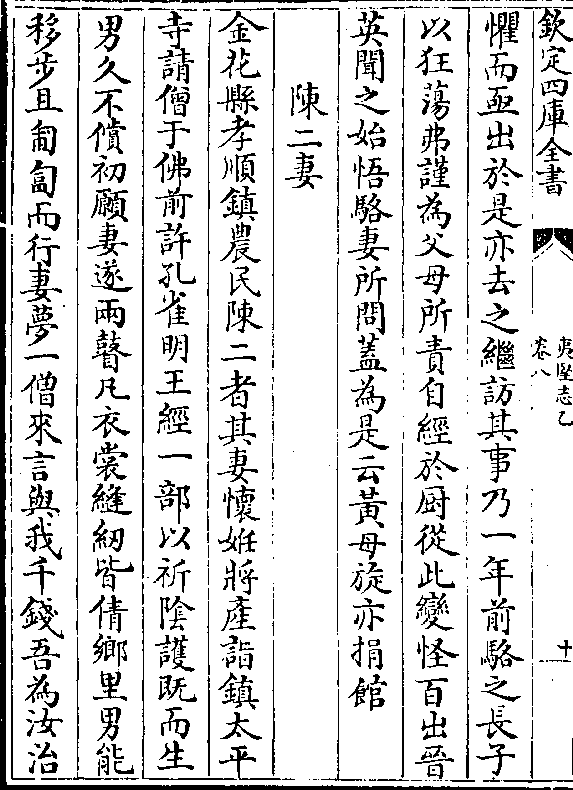 欽定四庫全書
夷堅志乙
卷八
十
懼而亟出於是亦去之繼訪其事乃一年前駱之長子
以狂蕩弗謹為父母所責自經於厨從此變怪百出晉
英聞之始悟駱妻所問蓋為是云黃母旋亦捐館
陳二妻
金花縣孝順鎮農民陳二者其妻懷姙將產詣鎮太平
寺請僧于佛前許孔雀明王經一部以祈陰護既而生
男久不償初願妻遂兩瞽凡衣裳縫紉皆倩鄉里男能
移步且匍匐而行妻夢一僧來言與我千錢吾為汝治